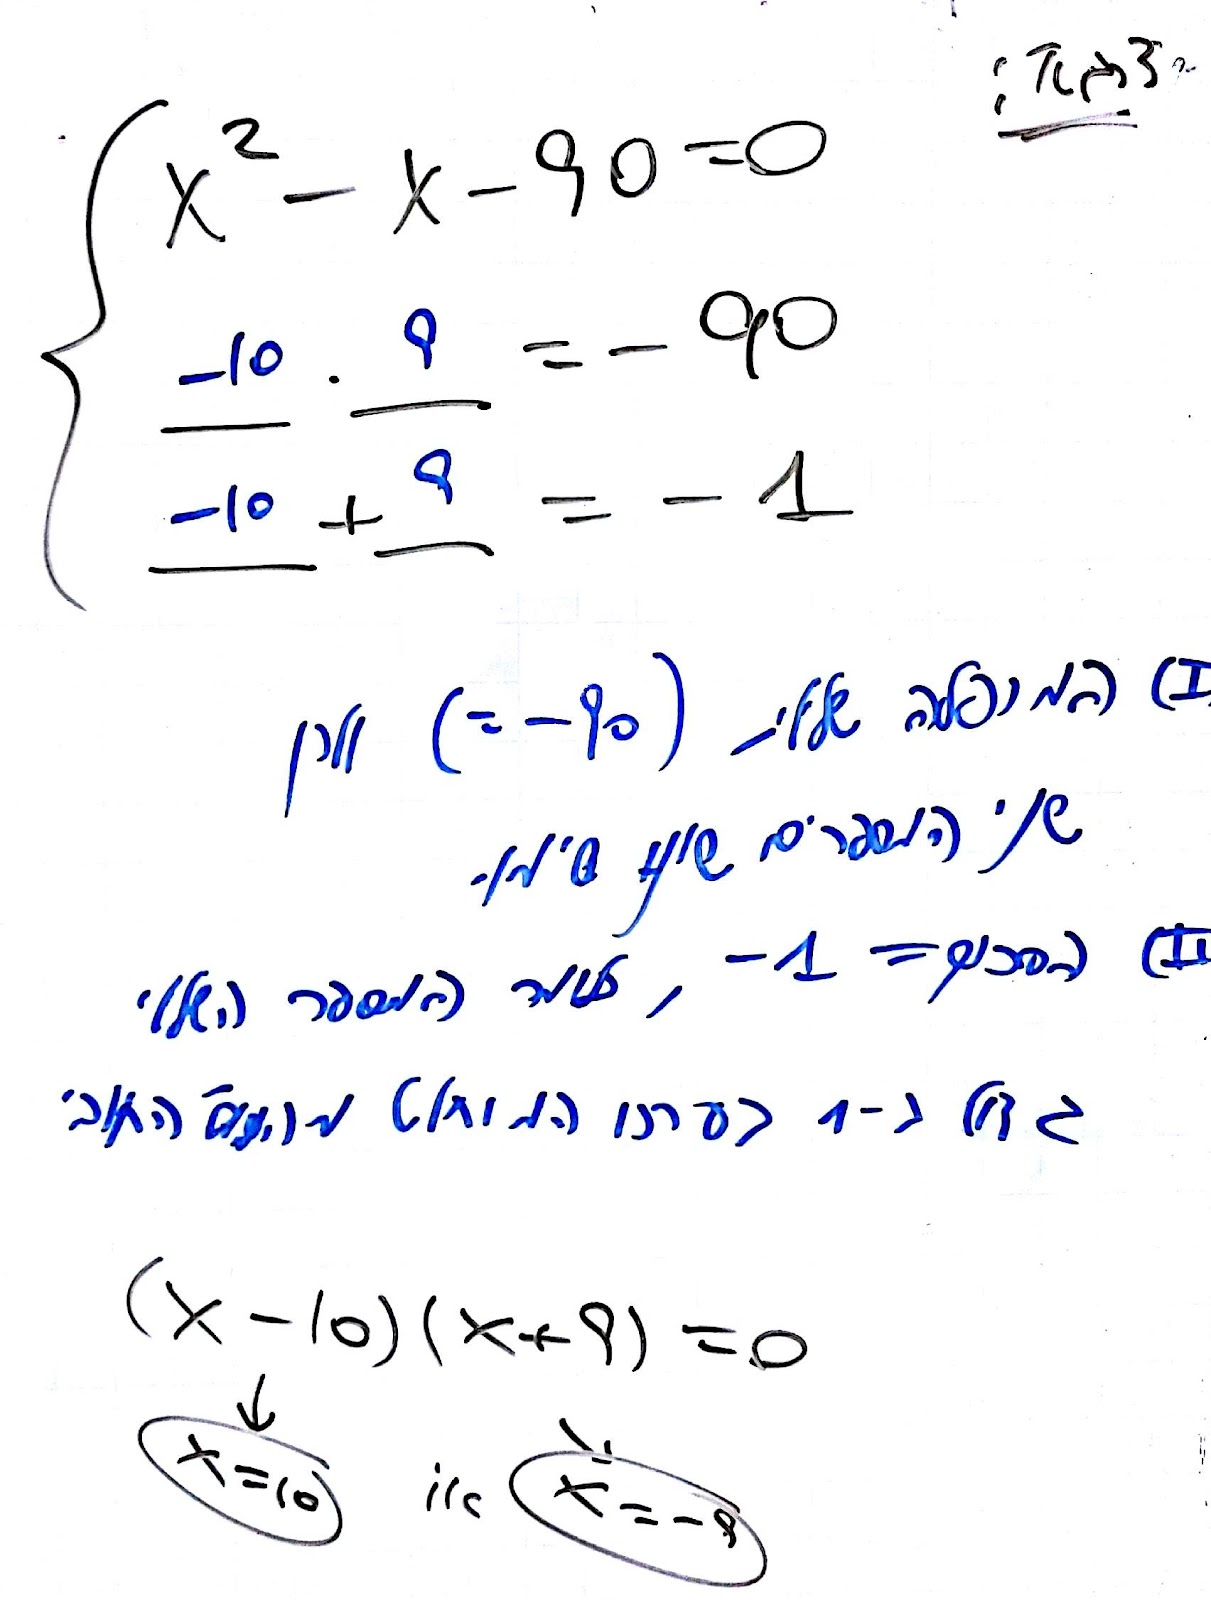 דוגמא:
x² - x - 90 = 0
-10 · 9 = - 90
-10 + 9 = - 1
I) המכפלה שלילי (= -90) ולכן
שני המספרים שוני סימן.
II) הסכום = -1, כלומר המספר השלילי
גדול ב-1 בערכו המוחלט מהמספר החיובי
(x - 10)(x + 9) = 0
↓ ↘
x = 10 או x = -9